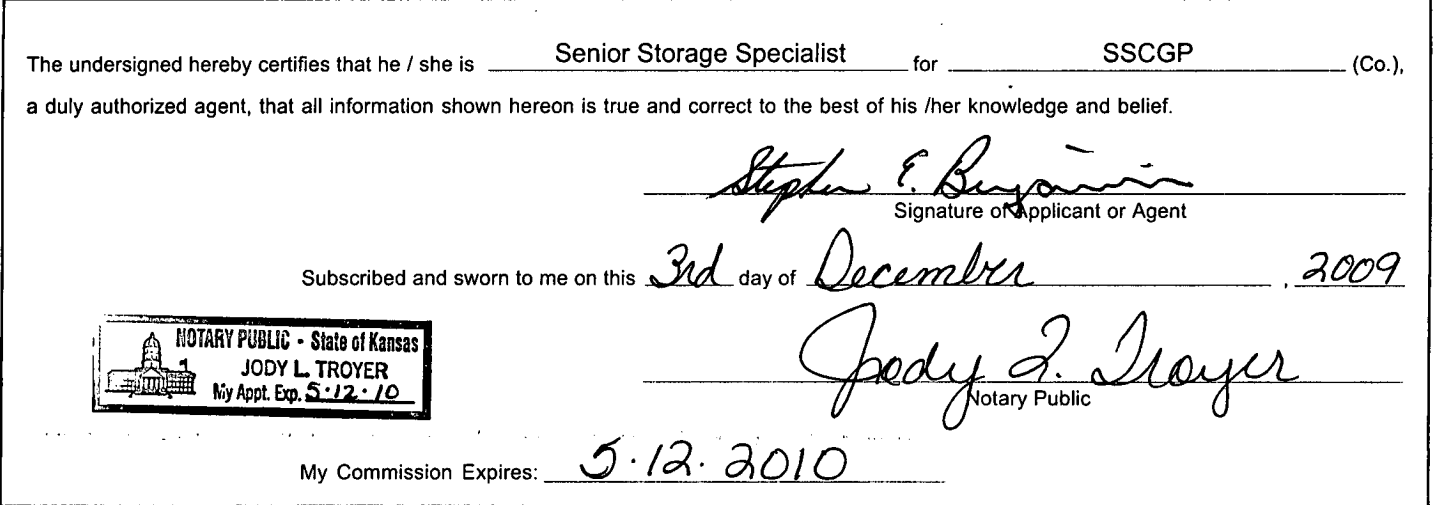 The undersigned hereby certifies that he / she is Senior Storage Specialist for SSCGP (Co.),
a duly authorized agent, that all information shown hereon is true and correct to the best of his /her knowledge and belief.
Stephen E. Benjamin
Signature of Applicant or Agent
Subscribed and sworn to me on this 3rd day of December , 2009
NOTARY PUBLIC - State of Kansas
JODY L. TROYER
My Appt. Exp. 5·12·10
Jody L. Troyer
Notary Public
My Commission Expires: 5·12·2010